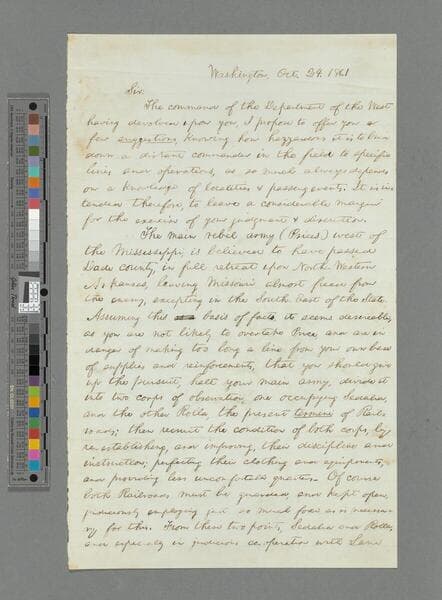 Washington, Oct. 24. 1861
Sir:
The command of the Department of the West
having devolved upon you, I propose to offer you a
few suggestions, Knowing how hazzardous it is to bind
down a distant commander in the field to specific
lines and operations, as so much always depends
on a knowledge of localities & passing events. It is in-
tended therefore, to leave a considerable margin
for the exercise of your judgment & discretion.
The main rebel army (Prices) west of
the Mississippi, is believed to have passed
Dade county, in full retreat upon North-Western
Arkansas, leaving Missouri almost freed from
the enemy, excepting in the South East of the State.
Assuming this basis of fact, it seems desireable,
as you are not likely to overtake Price, and are in
danger of making too long a line from your own base
of supplies and reinforcements, that you should give
up the pursuit, halt your main army, divide it
into two corps of observation, one occupying Sedalia,
and the other Rolla, the present termini of Rail-
roads; then recruit the condition of both corps, by
re-establishing, and improving, their discipline and
instruction; perfecting their clothing and equipments,
and providing less uncomfortable quarters. Of course
both Railroads must be guarded, and kept open,
judiciously employing just so much force as is necessa-
ry for this. From these two points, Sedalia and Rolla,
and especially in judicious co-operation with Lane